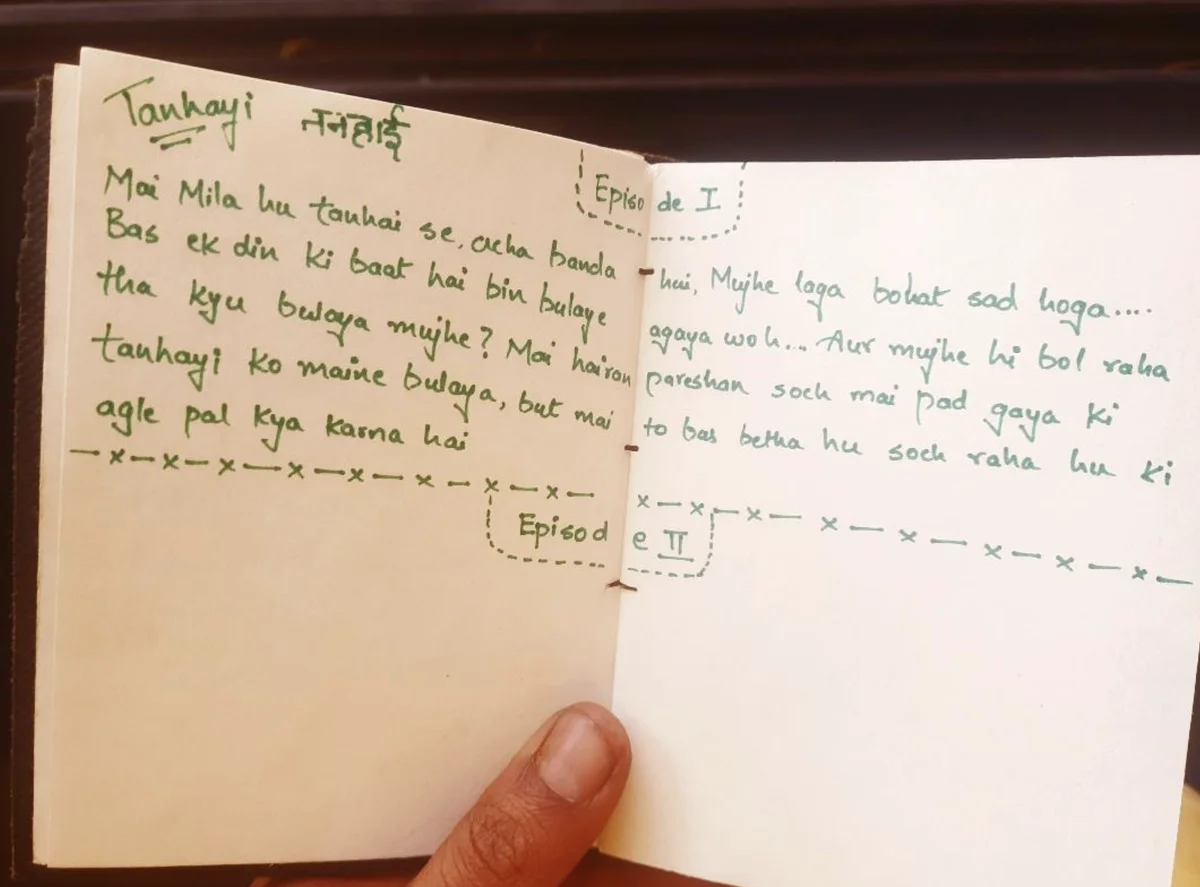 Tanhayi तनहाई
Episode I
Mai Mila hu tanhai se, acha banda hai, Mujhe laga bohat sad hoga....
Bas ek din ki baat hai bin bulaye agaya woh... Aur mujhe hi bol raha
tha kyu bulaya mujhe? Mai hairan pareshan soch mai pad gaya ki
tanhayi ko maine bulaya, but mai to bas betha hu soch raha hu ki
agle pal kya karna hai
Episode II